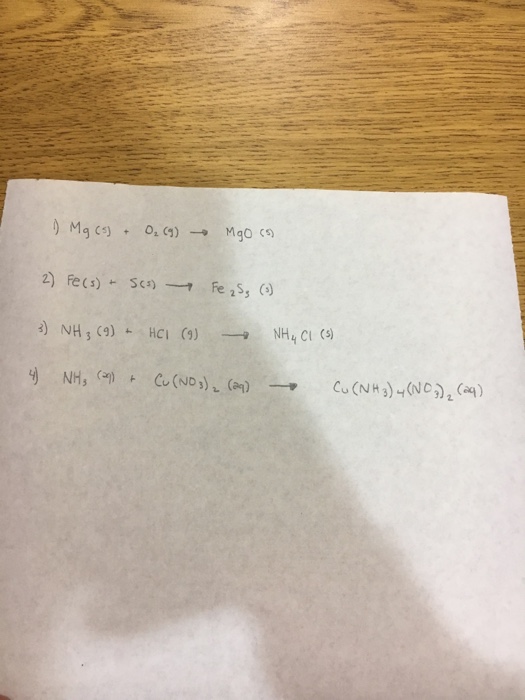 1) Mg (s) + O₂ (g) → MgO (s)
2) Fe(s) + S(s) → Fe₂S₃ (s)
3) NH₃ (g) + HCl (g) → NH₄Cl (s)
4) NH₃ (aq) + Cu(NO₃)₂ (aq) → Cu(NH₃)₄(NO₃)₂ (aq)